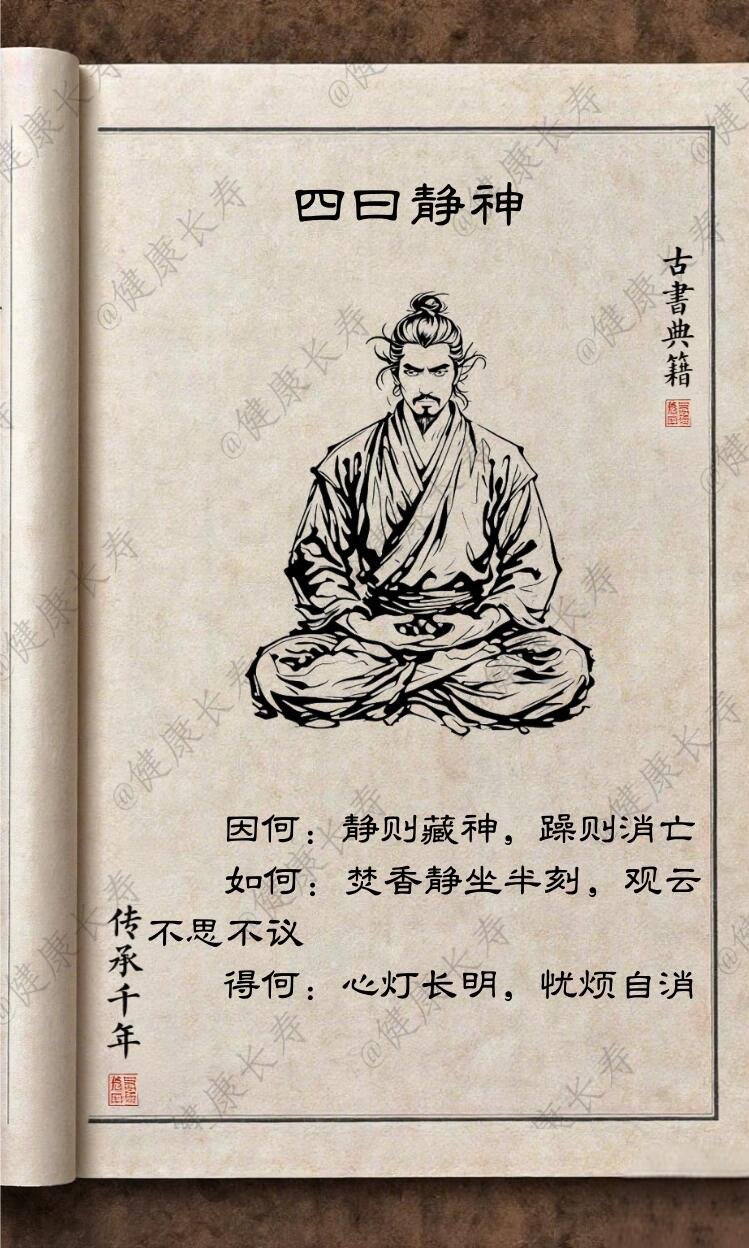 四曰静神
古書典籍
因何：静则藏神，躁则消亡
如何：焚香静坐半刻，观云
不思不议
得何：心灯长明，忧烦自消
传承千年
@健康长寿